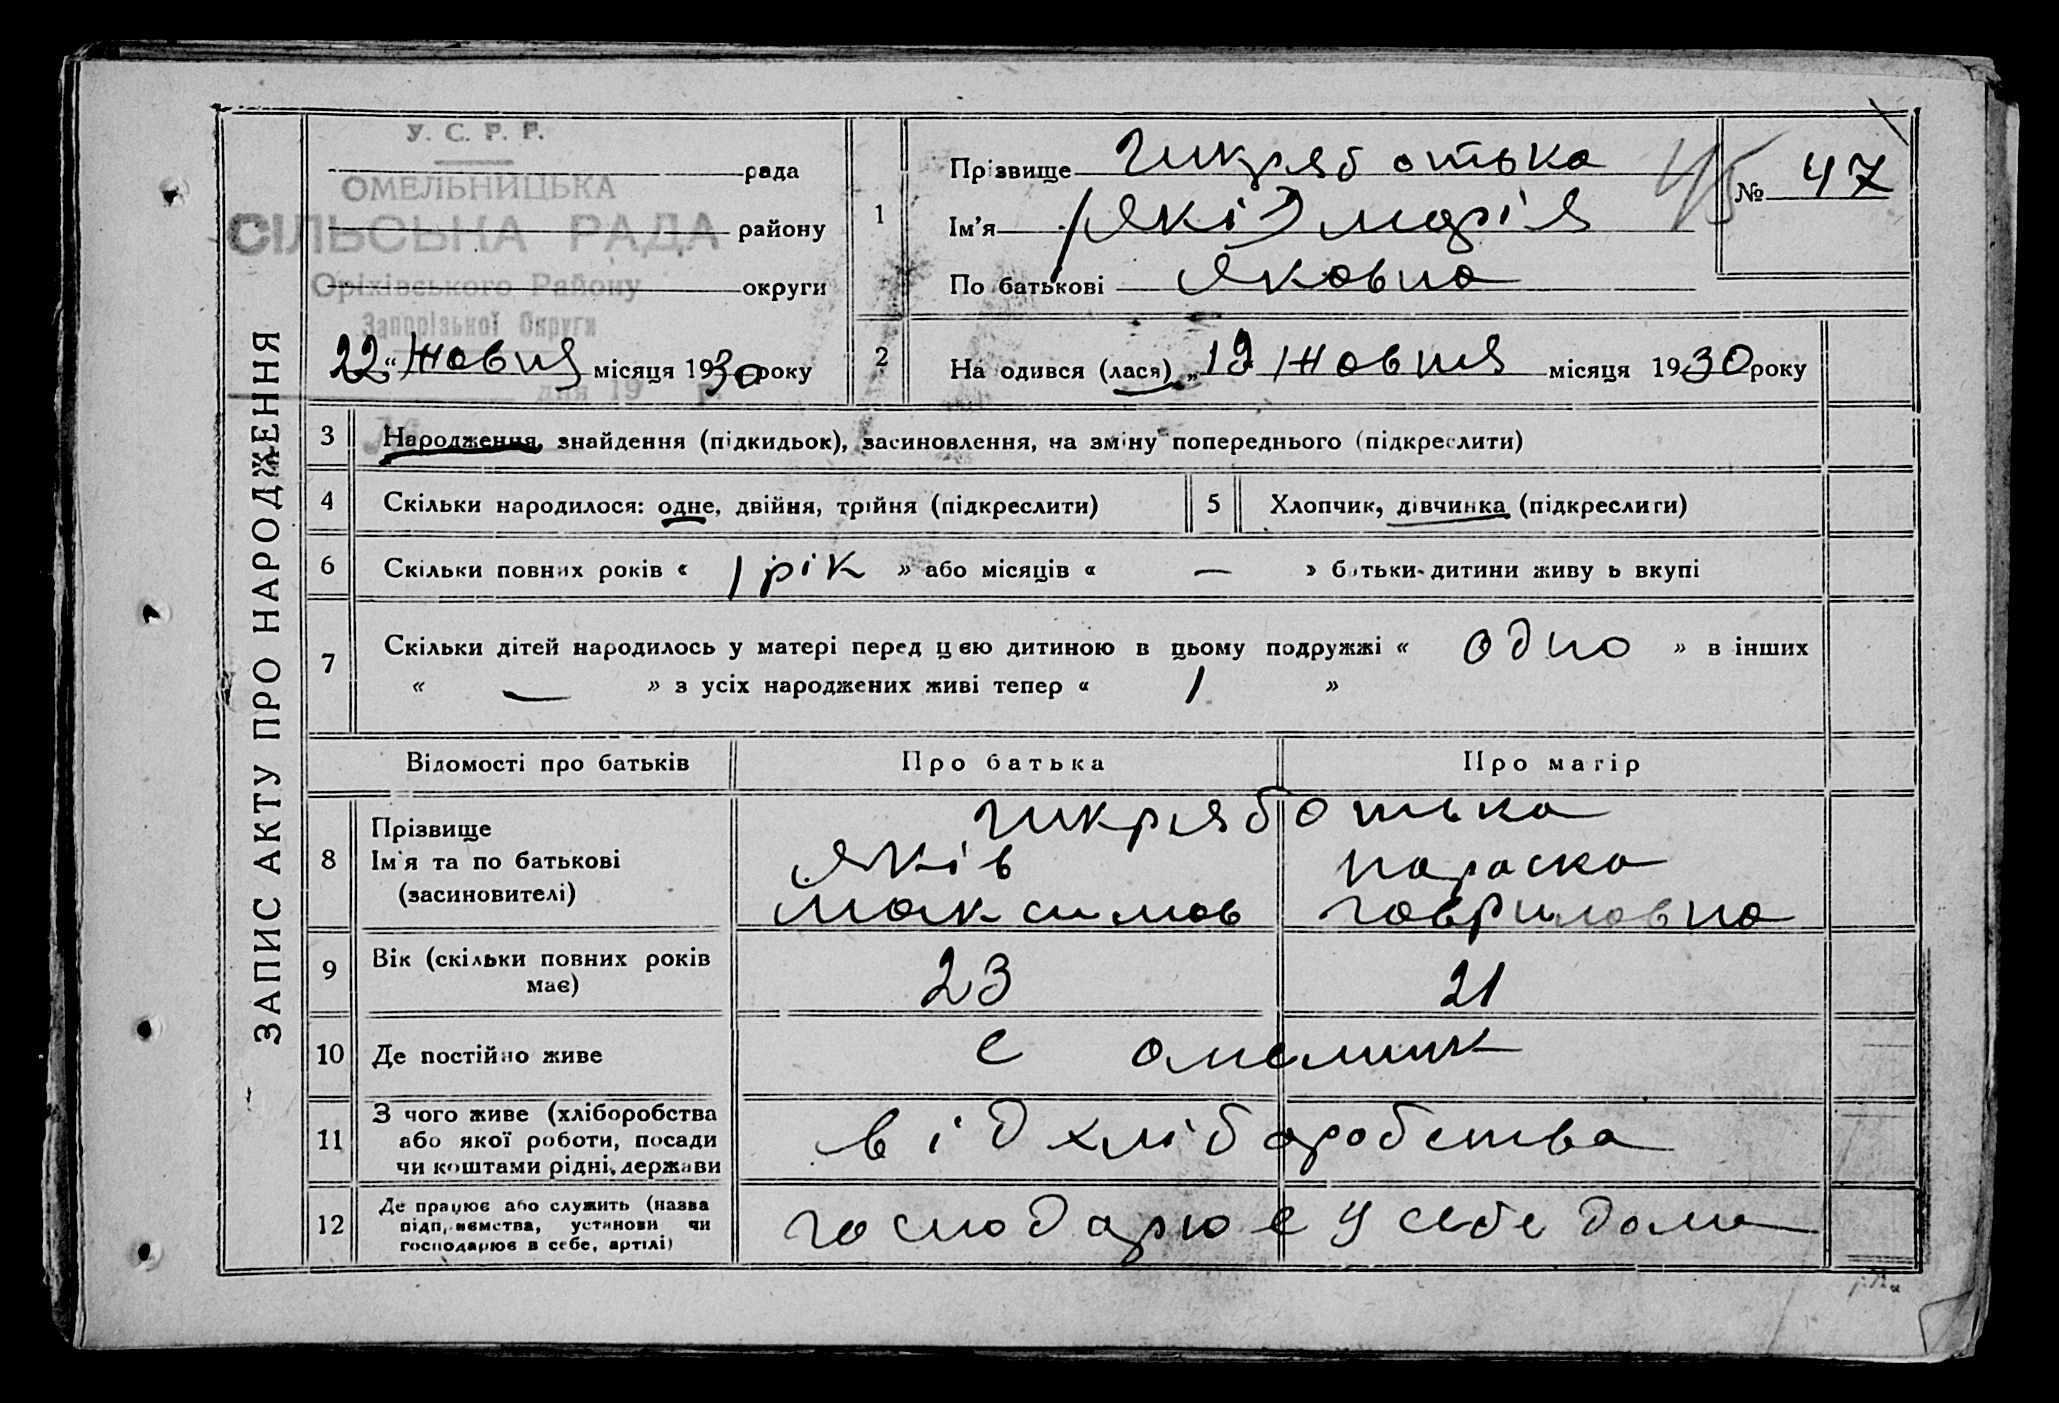 У. С. Р. Р.
рада
ОМЕЛЬНИЦЬКА
району
СІЛЬСЬКА РАДА
округи
Оріхівського Району
Запорізької Округи
"22" жовтня місяця 1930 року
дня 19 р.
ЗАПИС АКТУ ПРО НАРОДЖЕННЯ
1 Прізвище Шкряботька
Ім'я (Які) Марія
По батькові Яковна
45
№ 47
2 На одився (лася) „19 жовтня місяця 1930 року
3 Народження, знайдення (підкидьок), засиновлення, на зміну попереднього (підкреслити)
4 Скільки народилося: одне, двійня, трійня (підкреслити)
5 Хлопчик, дівчинка (підкреслити)
6 Скільки повних років « 1 рік » або місяців « — » батьки дитини живу ь вкупі
7 Скільки дітей народилось у матері перед цею дитиною в цьому подружжі « одно » в інших
« — » з усіх народжених живі тепер « 1 »
Відомості про батьків Про батька Про матір
8 Прізвище
Ім'я та по батькові
(засиновителі)
Шкряботька
Яків Параска
Максимов Гавриловна
9 Вік (скільки повних років
має)
23 21
10 Де постійно живе
с Омелник
11 З чого живе (хліборобства
або якої роботи, посади
чи коштами рідні, держави
від хліборобства
12 Де працює або служить (назва
підприємства, установи чи
господарює в себе, артілі)
господарює у себе дома